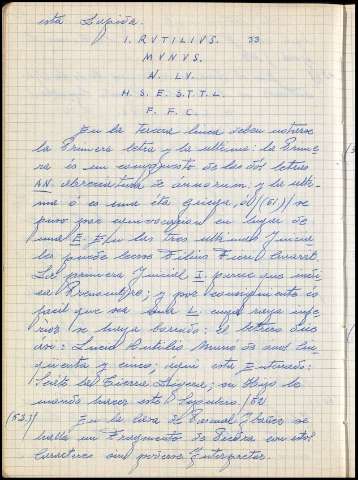 esta Lapida.
I. RVTILIVS. 33
MVNVS.
N. LV.
H. S. E. S. T. T. L.
F. F. C.
En la tercera linea deben notarse
la Primera letra y la ultima: la Prime-
ra és un compuesto de las dos letras
AN. abreviatura de annorum, y la ulti-
ma ó es una éta griega, /(61)/ se
puso por equivocacion en lugar de
una E. En las tres ultimas Iniciales
se puede leerse Filius Fieri Curavit.
La primera Inicial I parece que indi-
ca Prenombre; y por consiguiente és
facil que sea una L. cuya raya infe-
rior se haya borrado: el letrero dice
así: Lucio Rutilio Muno de edad cin-
quenta y cinco; aqui esta Enterado:
Seate la tierra ligera; su Hijo le
mando hacer este Sepulcro /62
(62.)/ En la casa de Ibañez se
halla un Fragmento de Piedra con estos
caracteres sin poderse Interpretar.